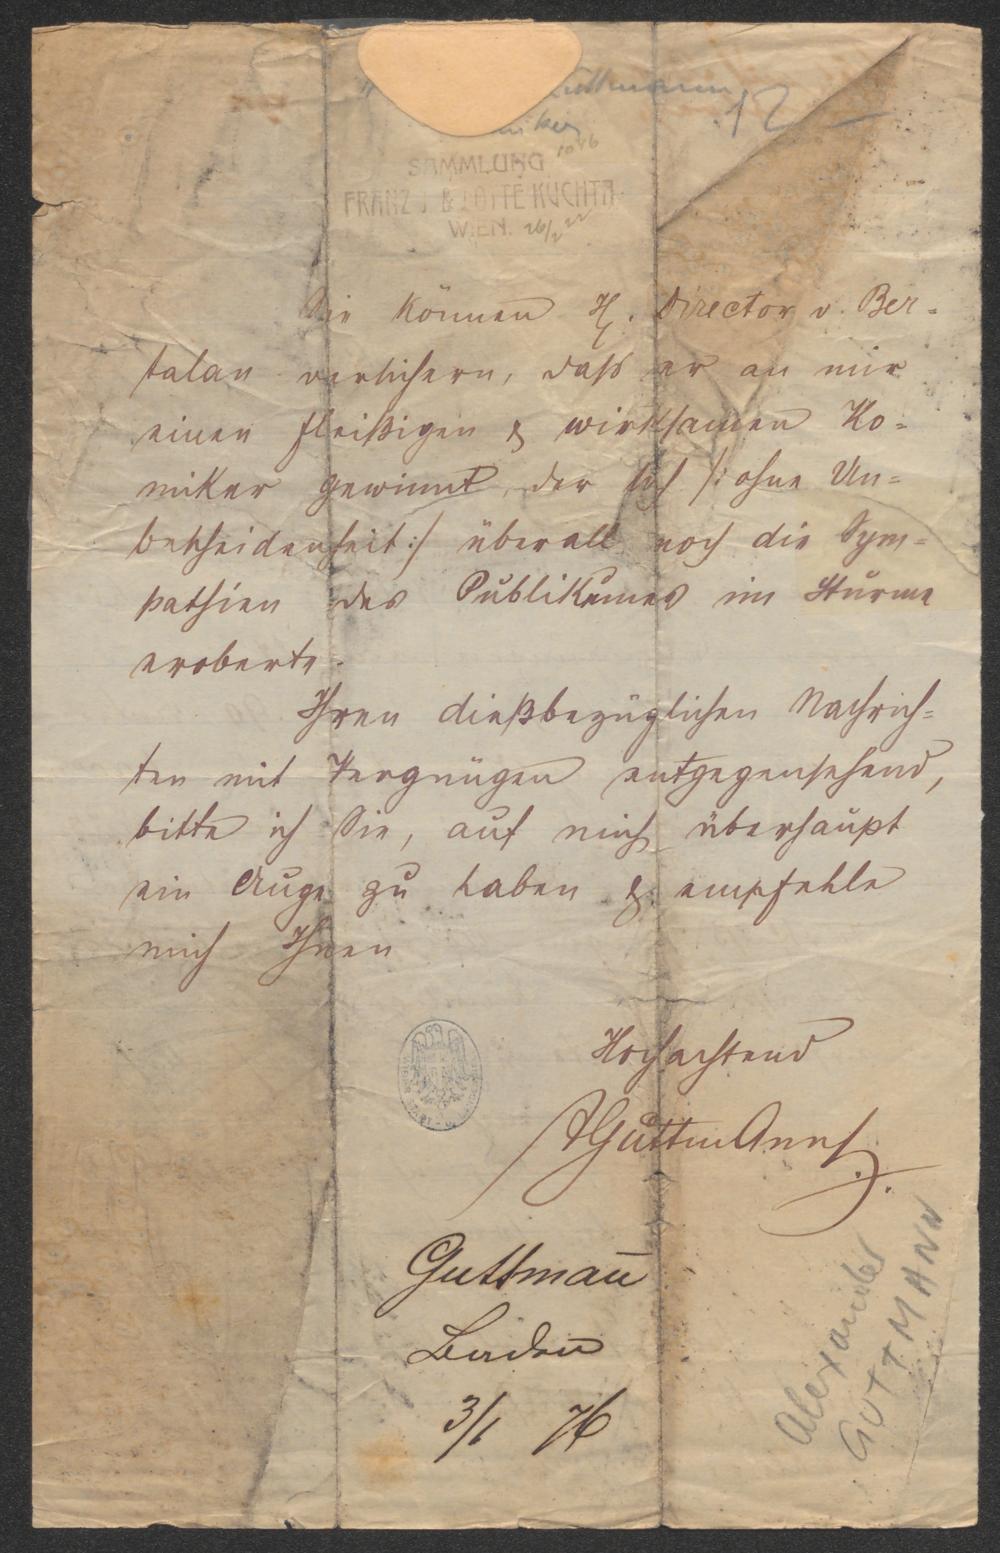 Guttmann
12
Komiker
1046
SAMMLUNG
FRANZ J & LOTTE KUCHTA
WIEN. 26/2 22
Sie können H. Director v. Ber-
talan versichern, daß er an mir
einen fleißigen & wirksamen Ko-
miker gewinnt, der sich /: ohne Un-
bescheidenheit :/ überall noch die Sym-
pathien des Publikumes im Sturme
eroberte.
Ihren dießbezüglichen Nachrich-
ten mit Vergnügen entgegensehend,
bitte ich Sie, auf mich überhaupt
ein Auge zu haben & empfehle
mich Ihnen
Hochachtend
AGuttmann
Guttmann
Baden
3/1 76
Alexander
GUTTMANN